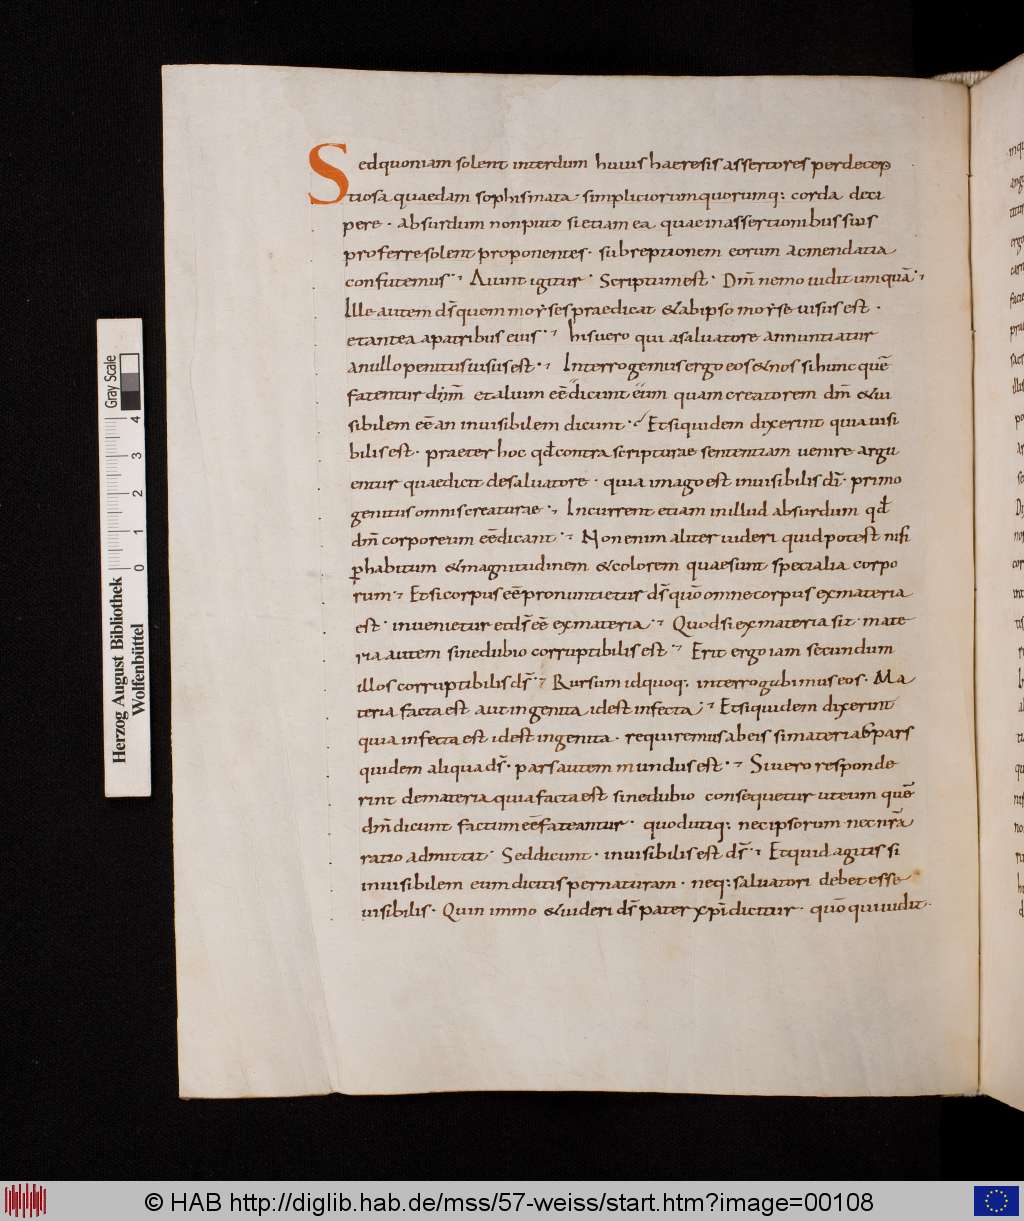 Sedquoniam solent interdum huius haeresis assertores perdecep
tiosa quaedam sophismata· simpliciorumquorumq; corda deci
pere· absurdum nonputo sietiam ea quaeinassertionibussuis
proferresolent proponentes· subreptionem eorum acmendatia
confutemus· Aiunt igitur· Scriptumest· Dm̄ nemo uidit umquā·
Ille autem ds̄quem moẏsespraedicat &abipso moẏse uisus est·
etantea apatribus eius· hisuero qui asaluatore annuntiatur
anullo penitusuisusest· Interrogemusergo eos&nos sihunc quē
fatentur dn̄m et aluum eē dicunt eum quam creatorem dm̄ &ui
sibilem eē an inuisibilem dicunt· Etsiquidem dixerint quiauisi
bilisest· praeter hoc qđcontra scripturae sententiam uenire argu
entur quaedicit desaluatore· quia imagoest inuisibilisdī· primo
genitusomniscreaturae· Incurrent etiam inillud absurdum qđ
dm̄ corporeum eēdicant· Nonenim aliter uideri quidpotest nisi
ꝑhabitum &magnitudinem &colorem quaesunt specialia corpo
rum· Etsicorpuseēpronuntietur ds̄ quō omnecorpus exmateria
est· inuenietur etds̄ eē exmateria· Quodsiexmateria sit· mate
ria autem sinedubio corruptibilis est· Erit ergo iam secundum
illos corruptibilisds̄· Rursum idquoq; interrogabimus eos· Ma
teria facta est aut ingenita idest infecta· Etsiquidem dixerint
quia infecta est idest ingenita· requiremusabeis simateriae pars
quidem aliqua ds̄· parsautem mundus est· Siuero responde
rint demateria quiafacta est sinedubio consequetur uteum quē
dm̄dicunt factum eēfateantur· quodutiq; necipsorum necnr̄a
ratio admittit· Seddicunt· inuisibilis est ds̄· Etquid agitis si
inuisibilem eum dicitis pernaturam· neq; saluatori debet esse
uisibilis· Quin immo &uideri ds̄ pater xp̄i dicitur· quō quiuidit·
Herzog August Bibliothek
Wolfenbüttel
0 1 2 3 4
Gray Scale
© HAB http://diglib.hab.de/mss/57-weiss/start.htm?image=00108